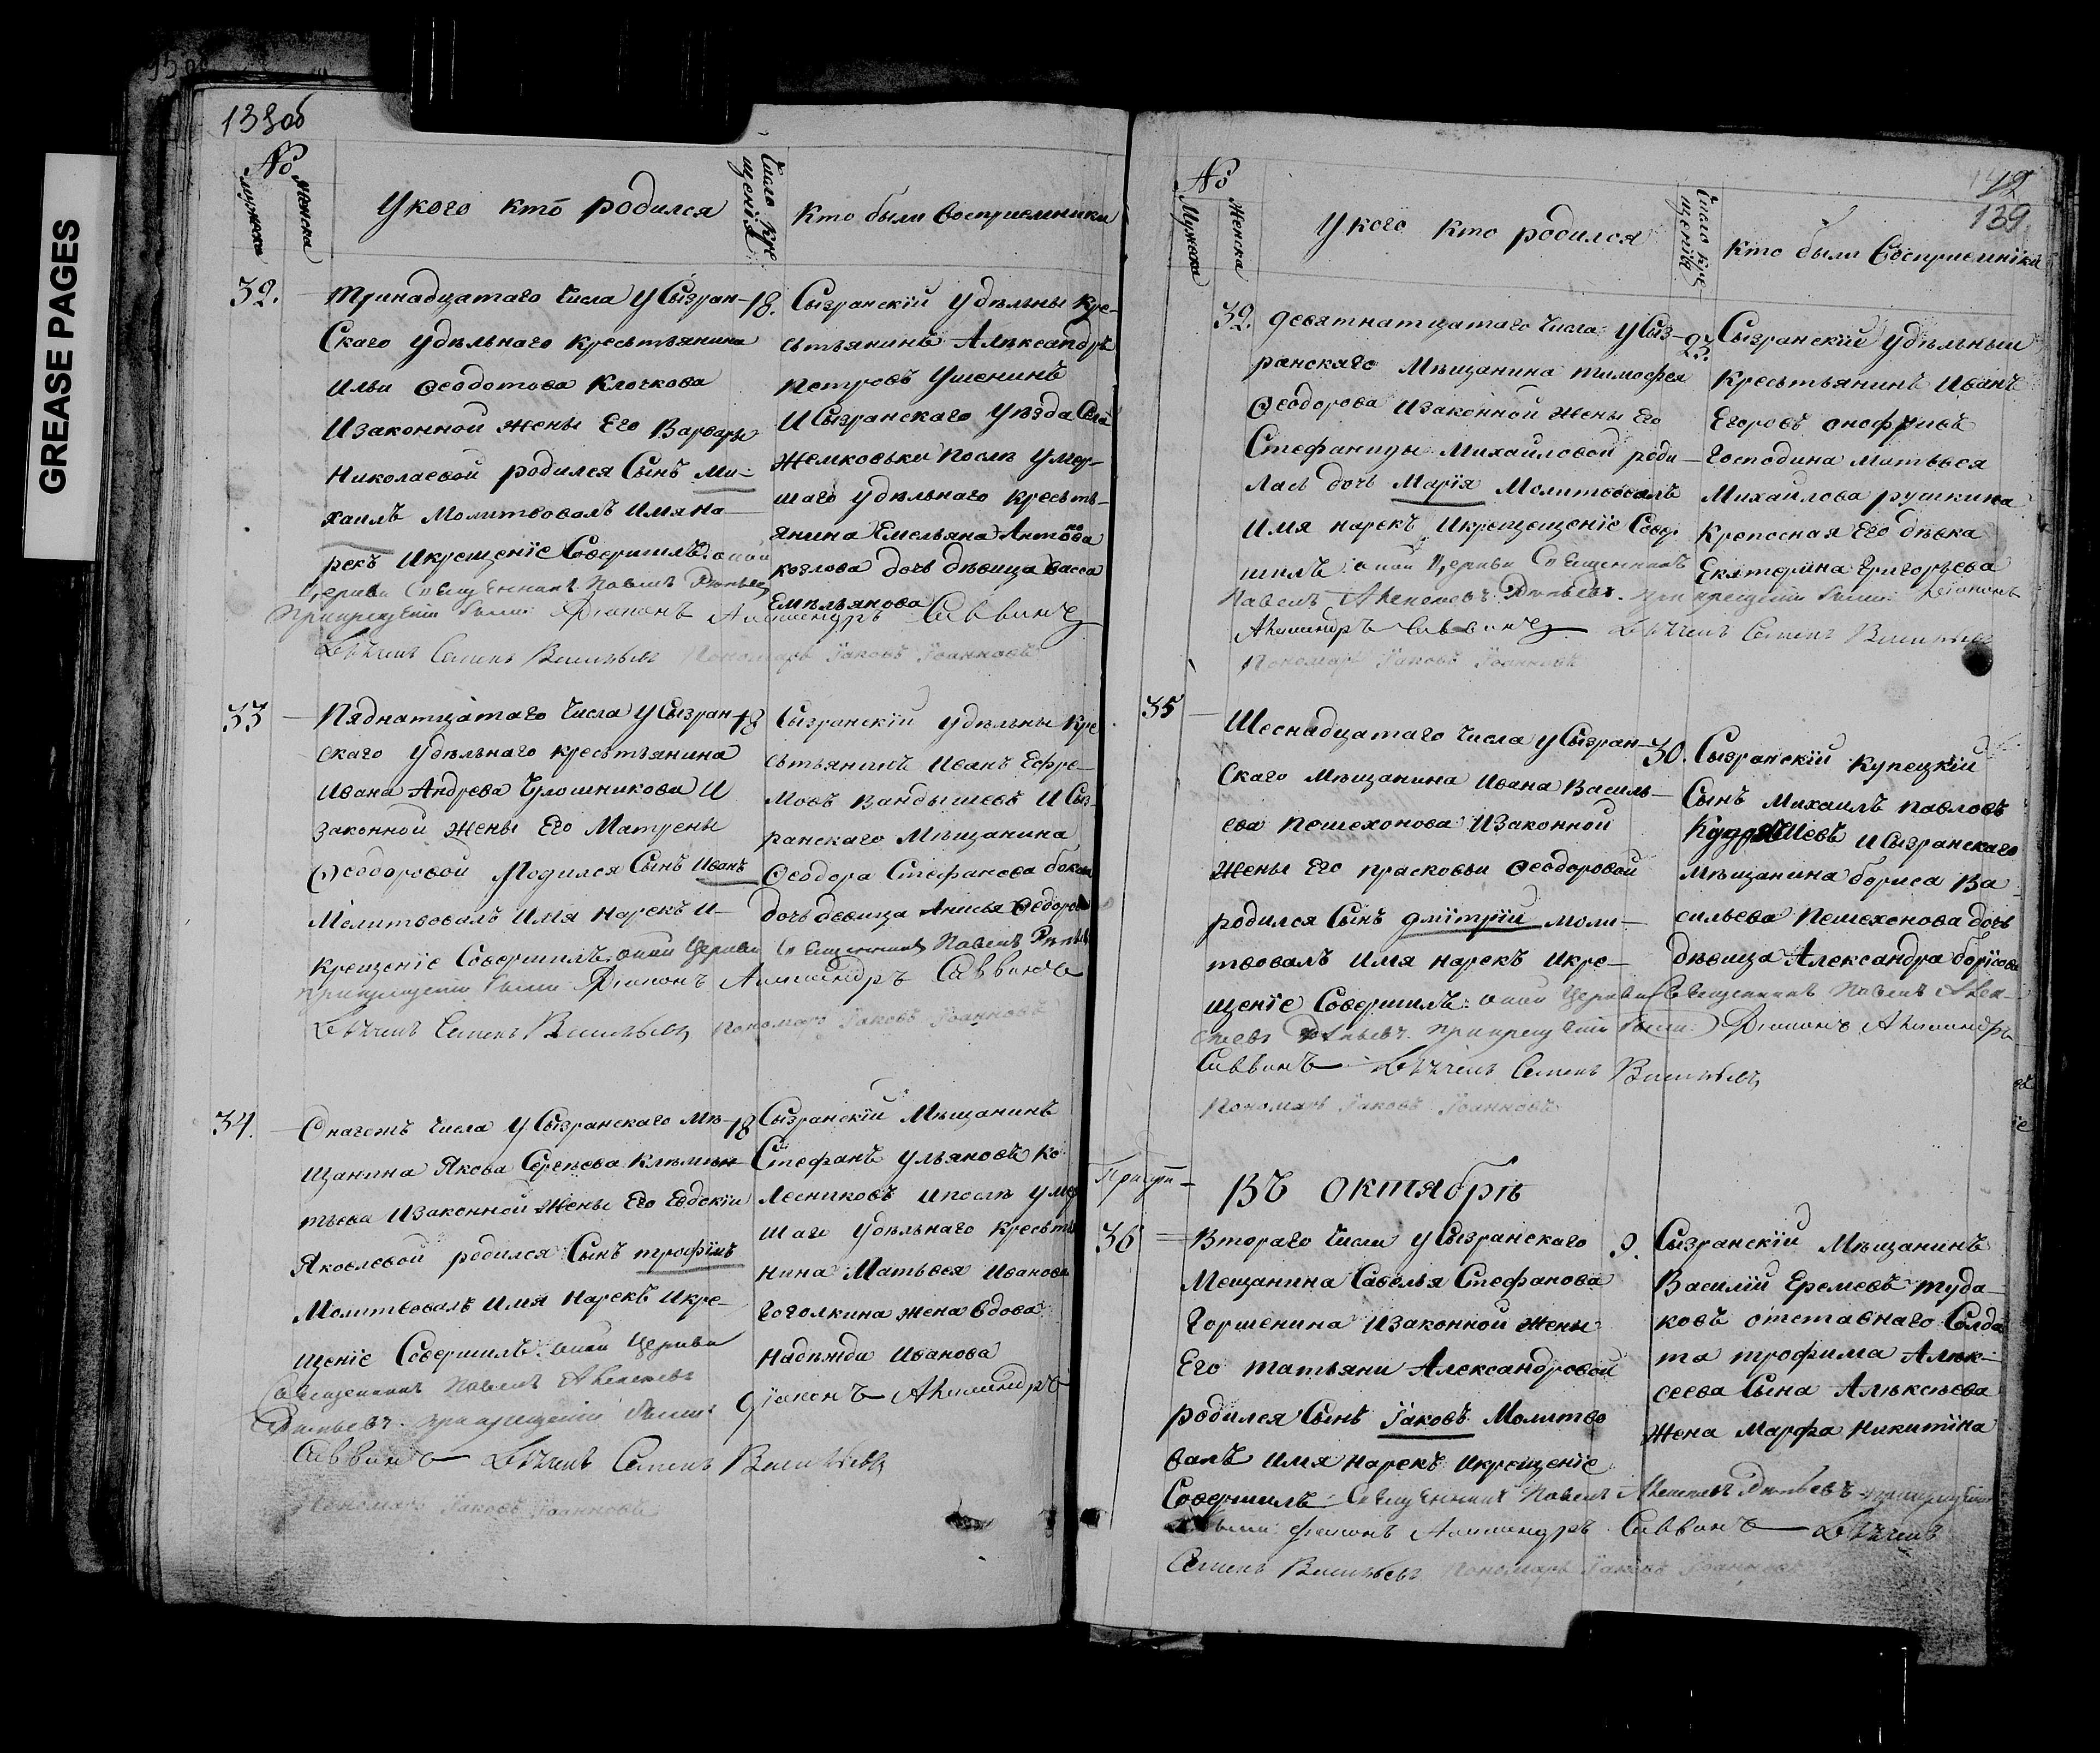 GREASE PAGES
138об
№
мужеска
Женска
У кого кто родился
Число кре
щенія
Кто были восприемники
32.
Тринадцатаго числа у Сызран-
скаго удѣльнаго крестьянина
Ильи Ѳеодотова Клочкова
и законной жены его Варвары
Николаевой родился сынъ Ми-
хаилъ молитвовалъ имя на-
рекъ и крещеніе совершилъ: оной
Церкви Священникъ Павелъ
При крещеніи были: Діаконъ Александръ Саввинъ
Семенъ Васильевъ Пономарь Іаковъ Іоанновъ
18.
Сызранскій удѣльны кре-
стьянинъ Алѣксандръ
Петровъ Ушенинъ
и Сызранскаго уѣзда села
Жемковьки после умер-
шаго удѣльнаго кресть-
янина Емельяна Антонова
козлова дочь дѣвица Васса
Емѣльянова
33
Пяднатцатаго числа у Сызран-
скаго удѣльнаго крестьянина
Ивана Андрева и
законной жены его Матрены
Ѳеодоровой родился сынъ Иванъ
молитвовалъ имя нарекъ и-
крещеніе совершилъ: оной Церкви Священникъ Павелъ
При крещеніи были Діаконъ Александръ Саввинъ
Семенъ Васильевъ Пономарь Іаковъ Іоанновъ
18
Сызранскій удѣльны кре
стьянинъ Иванъ Ефре-
мовъ Вандышевъ и Сыз-
ранскаго мѣщанина
Ѳеодора Стефанова
дочь девица Анисья Ѳедорова
34.
О начемъ числа у Сызранскаго мѣ-
щанина Якова Сергѣева Климѣн-
тьева и законной жены его Евдокіи
Яковлевой родился сынъ трофимъ
молитвовалъ имя нарекъ и кре-
щеніе совершилъ: оной Церкви
Священникъ Павелъ Алексѣевъ
при крещеніи были: діаконъ Александръ
Саввинъ Семенъ Васильевъ
Пономарь Іаковъ Іоанновъ
18
Сызранскій мѣщанинъ
Стефанъ ульяновъ ко
лесниковъ и послѣ умер
шаго удѣльнаго крестья
нина Матвея Иванова
Гоголкина жена вдова
Надѣжда Иванова
139.
№
Мужеска
Женска
У кого кто родился
Число кре-
щенія
Кто были Восприемники
32.
девятнатцатаго числа у Сыз-
ранскаго мѣщанина тимофея
Ѳеодорова и законной жены его
Стефаниды Михайловой роди-
лась дочь Марія молитвовалъ
имя нарекъ и крещещеніе совер
шилъ: оной Церкви Священникъ
Павелъ Алексѣевъ при крещеніи были: Діаконъ
Александръ Саввинъ Семенъ Васильевъ
Пономарь Іаковъ Іоанновъ
25
Сызранскій удѣльныи
крестьянинъ Иванъ
Егоровъ онофриевъ
Господина Матвѣя
Михайлова рушкина
крепосная его дѣвка
Екатерина Григорьева
35
Шеснадцатаго числа у Сызран-
скаго мѣщанина Ивана Василь-
ева Пешехонова и законной
жены его прасковьи Ѳеодоровой
родился сынъ дмітрій моли-
твовалъ имя нарекъ и кре-
щеніе совершилъ: оной Церкви Священникъ Павелъ Алек-
сѣевъ при крещеніи были: Діаконъ Александръ
Саввинъ Семенъ Васильевъ
Пономарь Іаковъ Іоанновъ
30.
Сызранскій Купецкій
сынъ Михаилъ Павловъ
и Сызранскаго
мѣщанина бориса Ва
сильева Пешехонова дочь
дѣвица Александра борісова
Въ октябрѣ
36
Втораго числа у Сызранскаго
мещанина Савелья Стефанова
Горшенина и законной жены
его татьяни Александровой
родился сынъ Іаковъ молитво
валъ имя нарекъ и крещеніе
совершилъ: Священникъ Павелъ Алексѣевъ при крещеніи
были Діаконъ Александръ Саввинъ
Семенъ Васильевъ Пономарь Іаковъ Іоанновъ
9.
Сызранскій мѣщанинъ
Василій Еремевъ туда-
ковъ отставнаго солда
та трофима Алѣк-
сеева сына Алѣксѣева
жена Марфа Никитіна